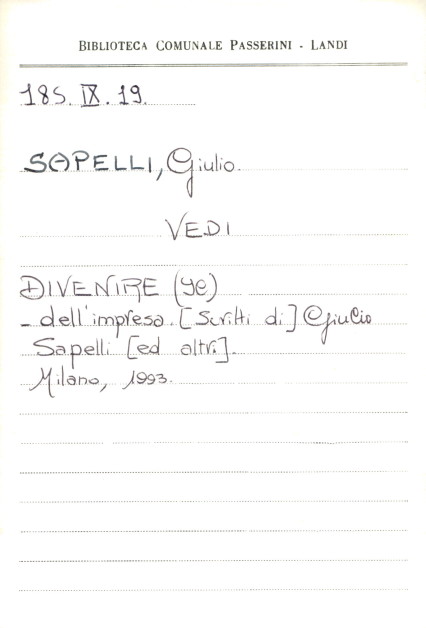 BIBLIOTECA COMUNALE PASSERINI - LANDI
185. IX. 19.
SAPELLI, Giulio.
VEDI
DIVENIRE (Ye)
- dell'impresa. [Scritti di] Giulio
Sapelli [ed altri].
Milano, 1993.